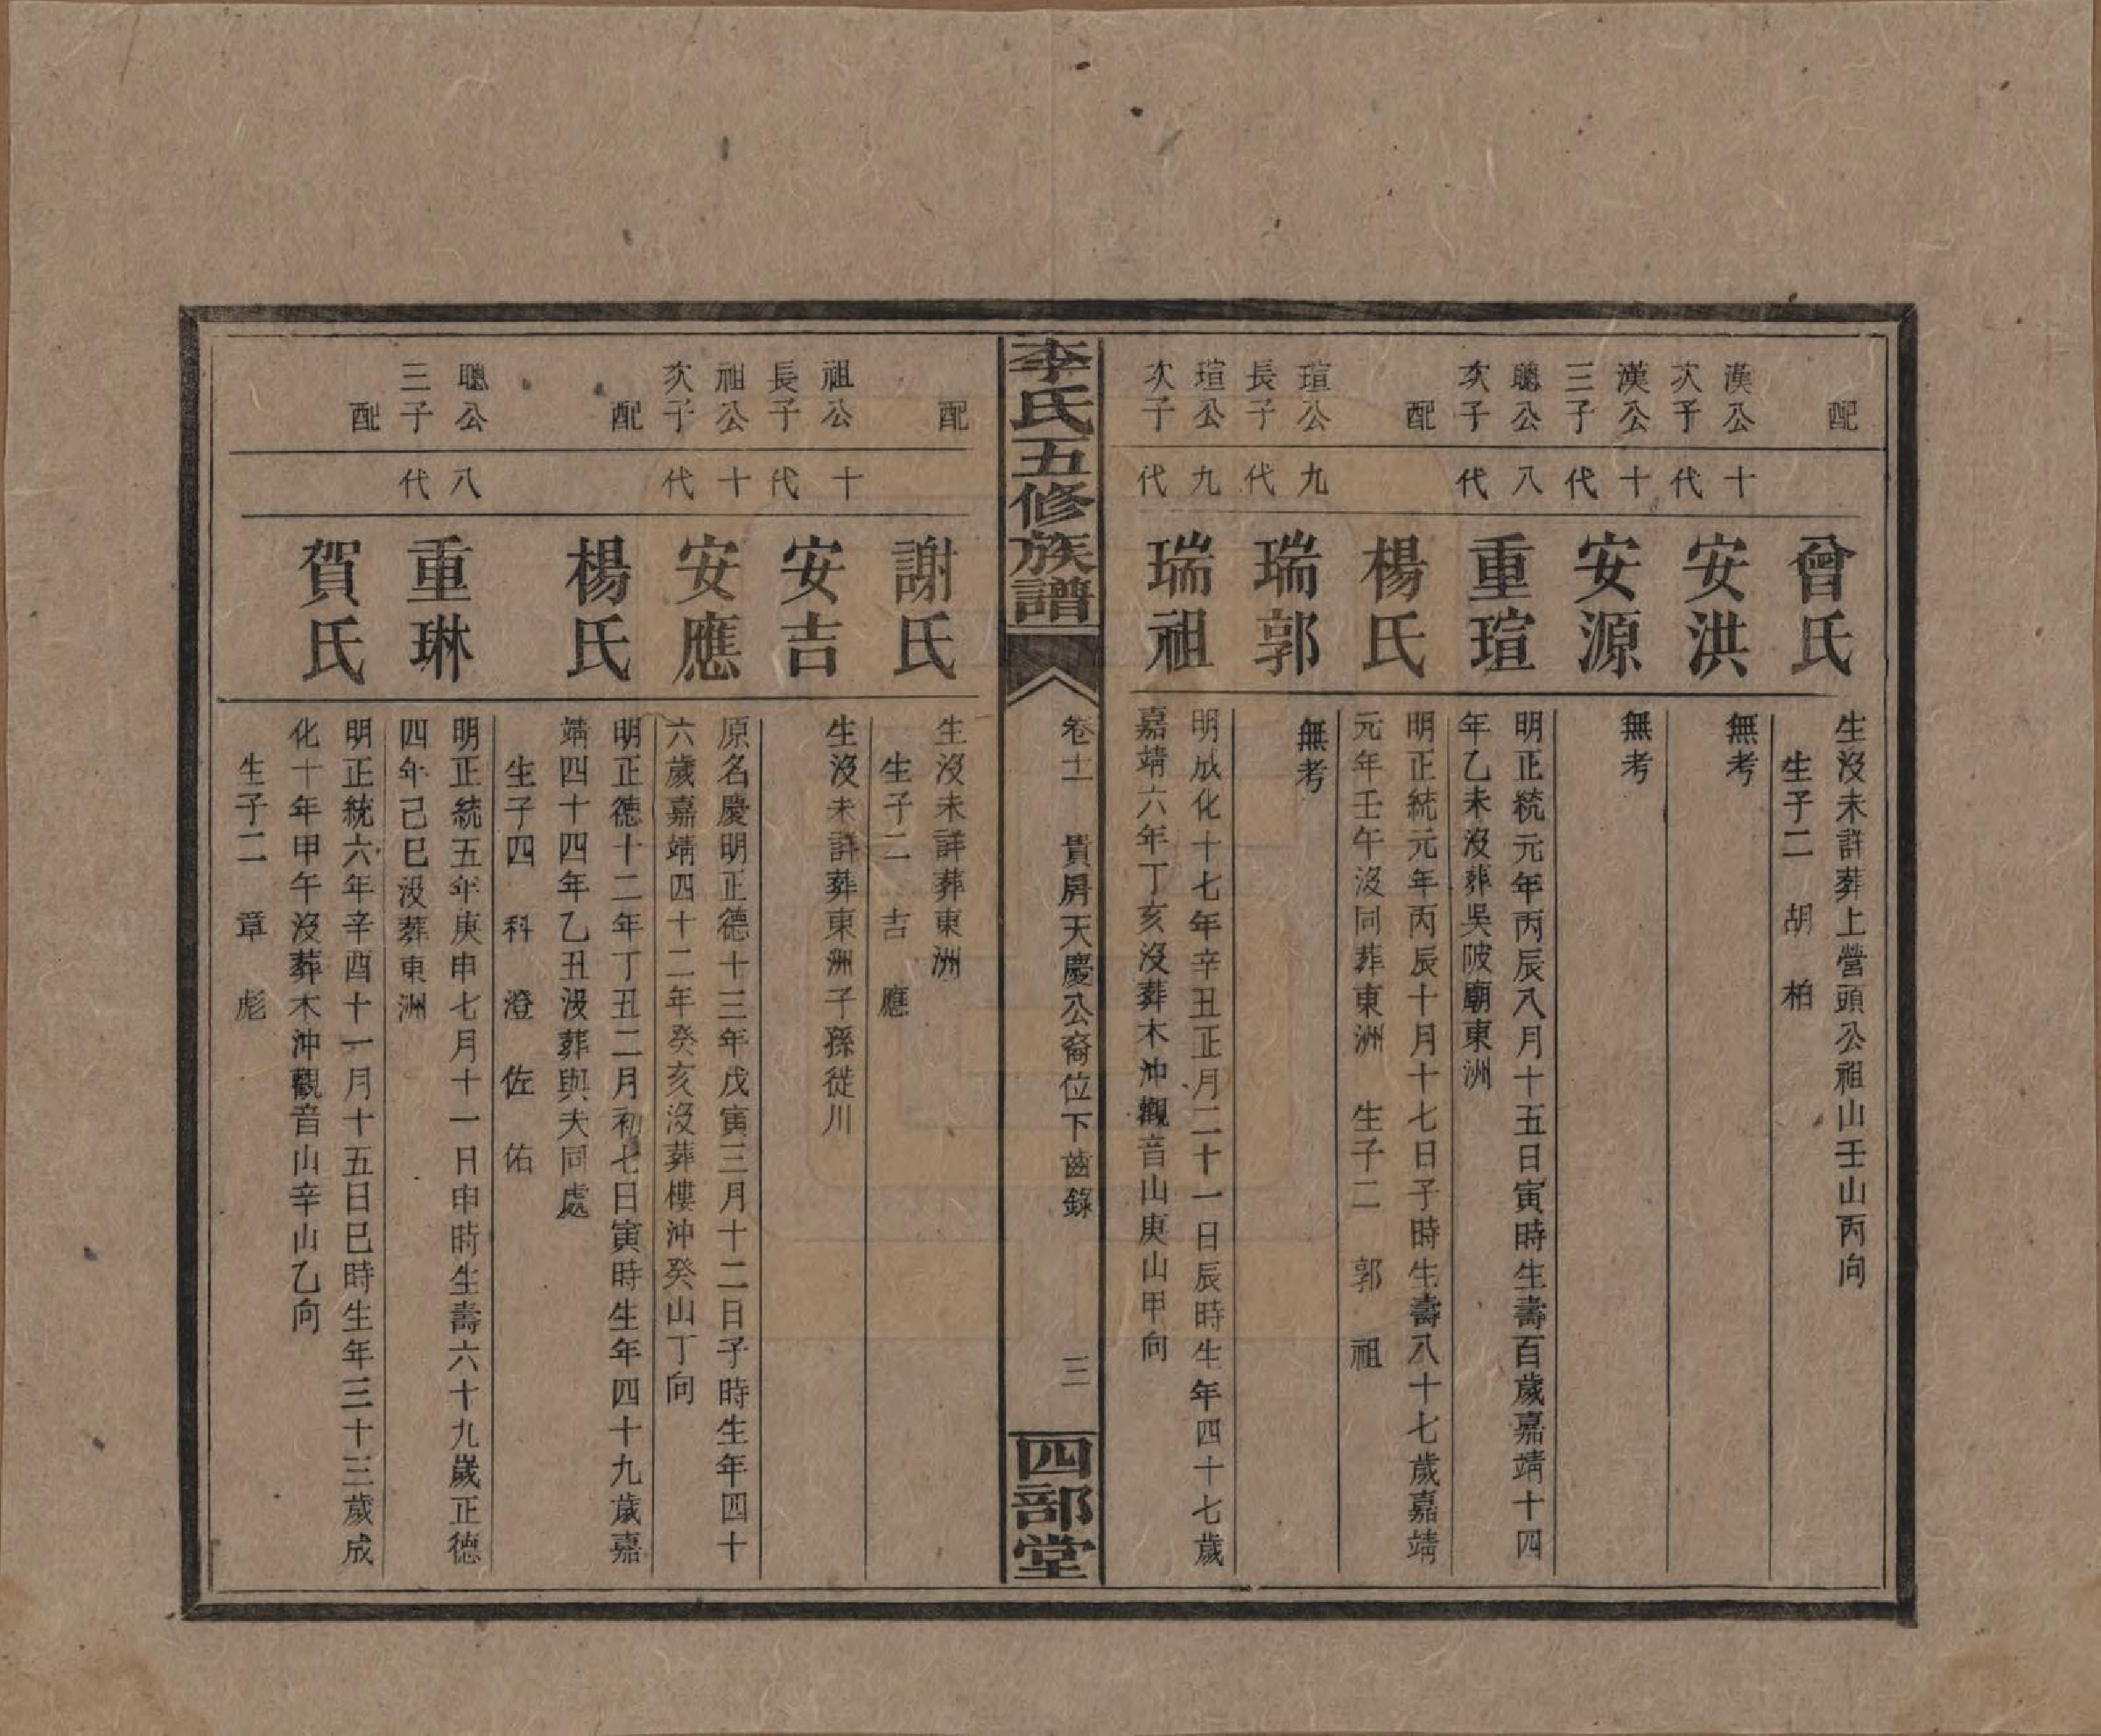 配
曾氏
生沒未詳葬上營頭公祖山壬山丙向
生子二　胡　柏
漢公
次子
十
代
安洪
無考
漢公
三子
十
代
安源
無考
聰公
次子
八
代
重瑄
明正統元年丙辰八月十五日寅時生壽百歲嘉靖十四
年乙未沒葬吳陂廟東洲
配
楊氏
明正統元年丙辰十月十七日子時生壽八十七歲嘉靖
元年壬午沒同葬東洲　生子二　郭　祖
瑄公
長子
九
代
瑞郭
無考
瑄公
次子
九
代
瑞祖
明成化十七年辛丑正月二十一日辰時生年四十七歲
嘉靖六年丁亥沒葬木沖觀音山庚山甲向
李氏五修族譜
卷十一　貴房天慶公裔位下齒錄　三
四部堂
配
謝氏
生沒未詳葬東洲
生子二　吉　應
祖公
長子
十
代
安吉
生沒未詳葬東洲子孫徙川
祖公
次子
十
代
安應
原名慶明正德十三年戊寅三月十二日子時生年四十
六歲嘉靖四十二年癸亥沒葬樓沖癸山丁向
配
楊氏
明正德十二年丁丑二月初七日寅時生年四十九歲嘉
靖四十四年乙丑沒葬與夫同處
生子四　科　澄　佐　佑
聰公
三子
八
代
重琳
明正統五年庚申七月十一日申時生壽六十九歲正德
四年己巳沒葬東洲
配
賀氏
明正統六年辛酉十一月十五日巳時生年三十三歲成
化十年甲午沒葬木沖觀音山辛山乙向
生子二　章　彪